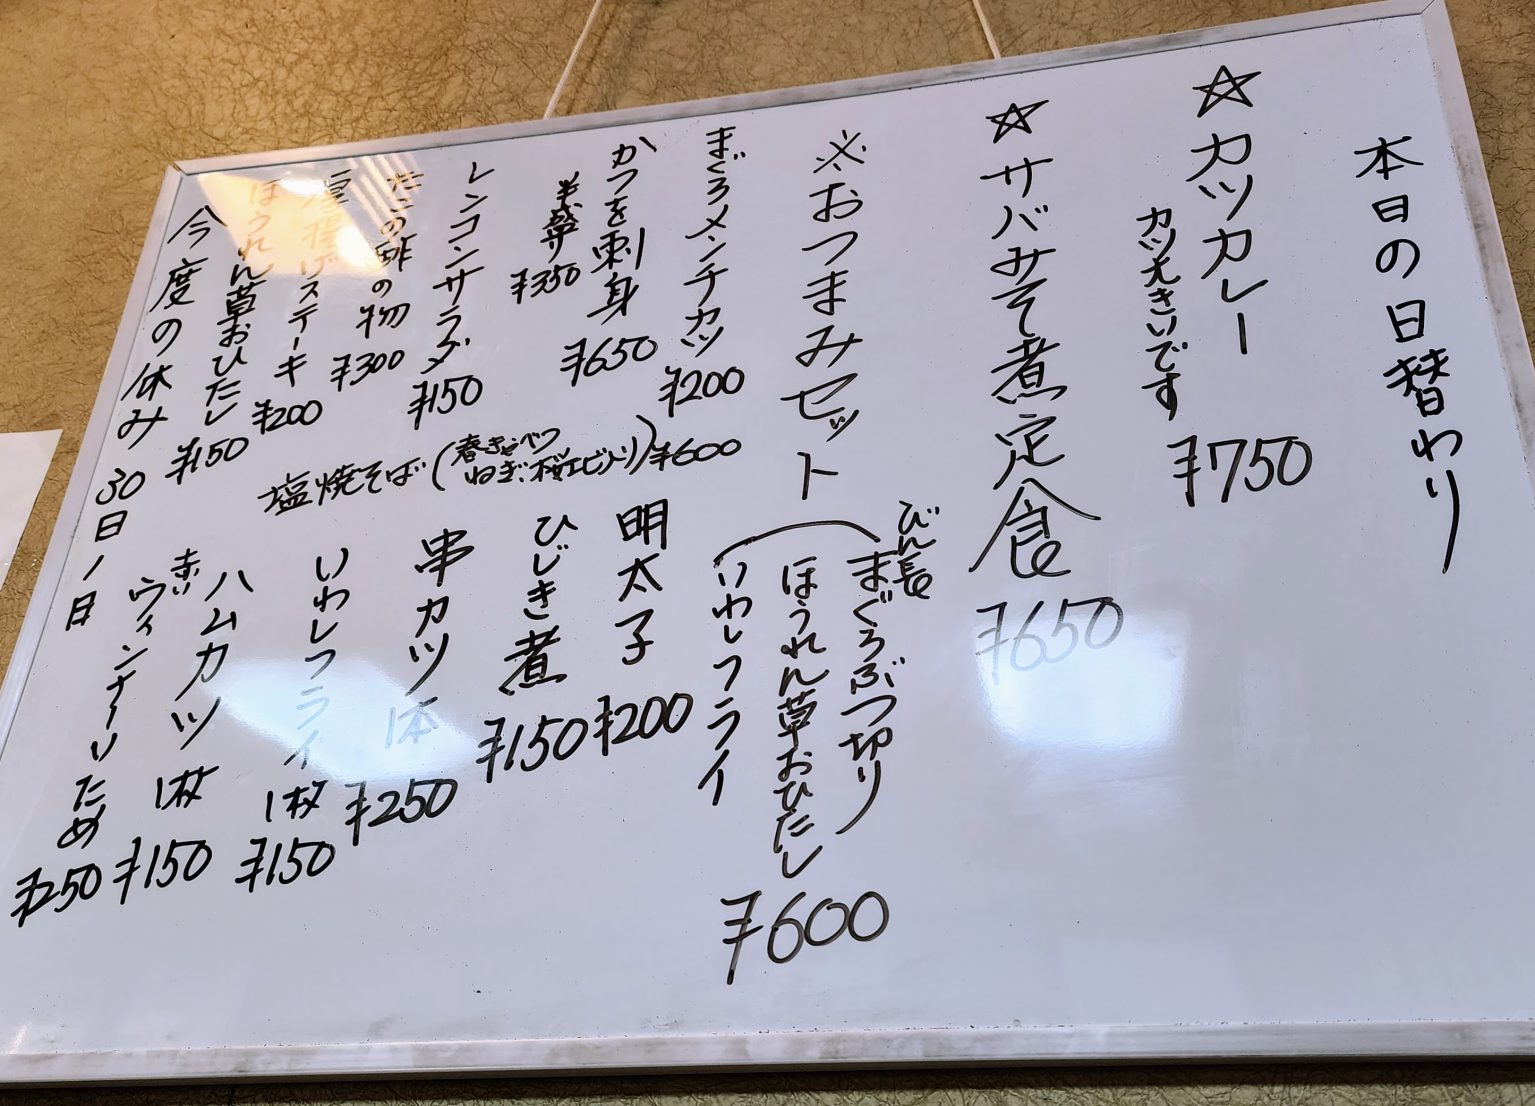 本日の日替わり
☆カツカレー
カツ大きいです
¥750
☆サバみそ煮定食
¥650
※おつまみセット
びん長
まぐろぶつ切り
ほうれん草おひたし
いわしフライ
¥600
まぐろメンチカツ
¥200
かつを刺身
¥650
半盛り
¥350
レンコンサラダ
¥150
たこの酢の物
¥300
厚揚げステーキ
¥200
ほうれん草おひたし
¥150
塩焼そば(春きゃべつ
ねぎ、桜エビ入り)¥600
明太子
¥200
ひじき煮
¥150
串カツ1本
¥250
いわしフライ 1枚
¥150
ハムカツ 1枚
¥150
赤い
ウィンナーいため
¥250
今度の休み 30日ノ月